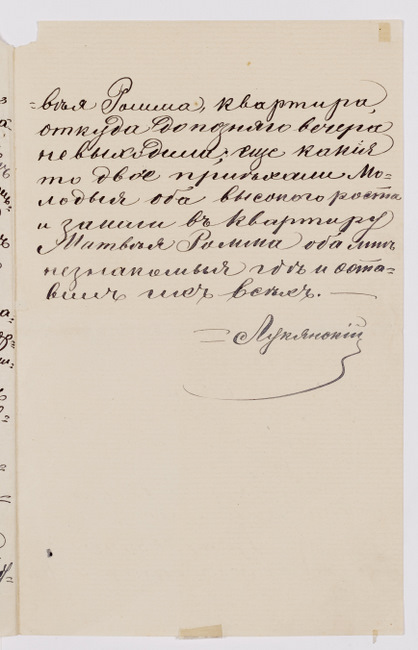 =вѣя Ромма, квартира,
откуда до позняго вечера
не выходила; еще какія
то двое пріѣхали Мо-
лодыя оба высокого роста
и зашли въ квартиру
Матвѣя Ромма оба мнѣ
незнакомыя гдѣ и оста-
вилъ ихъ всѣхъ. —
= Лукянскій